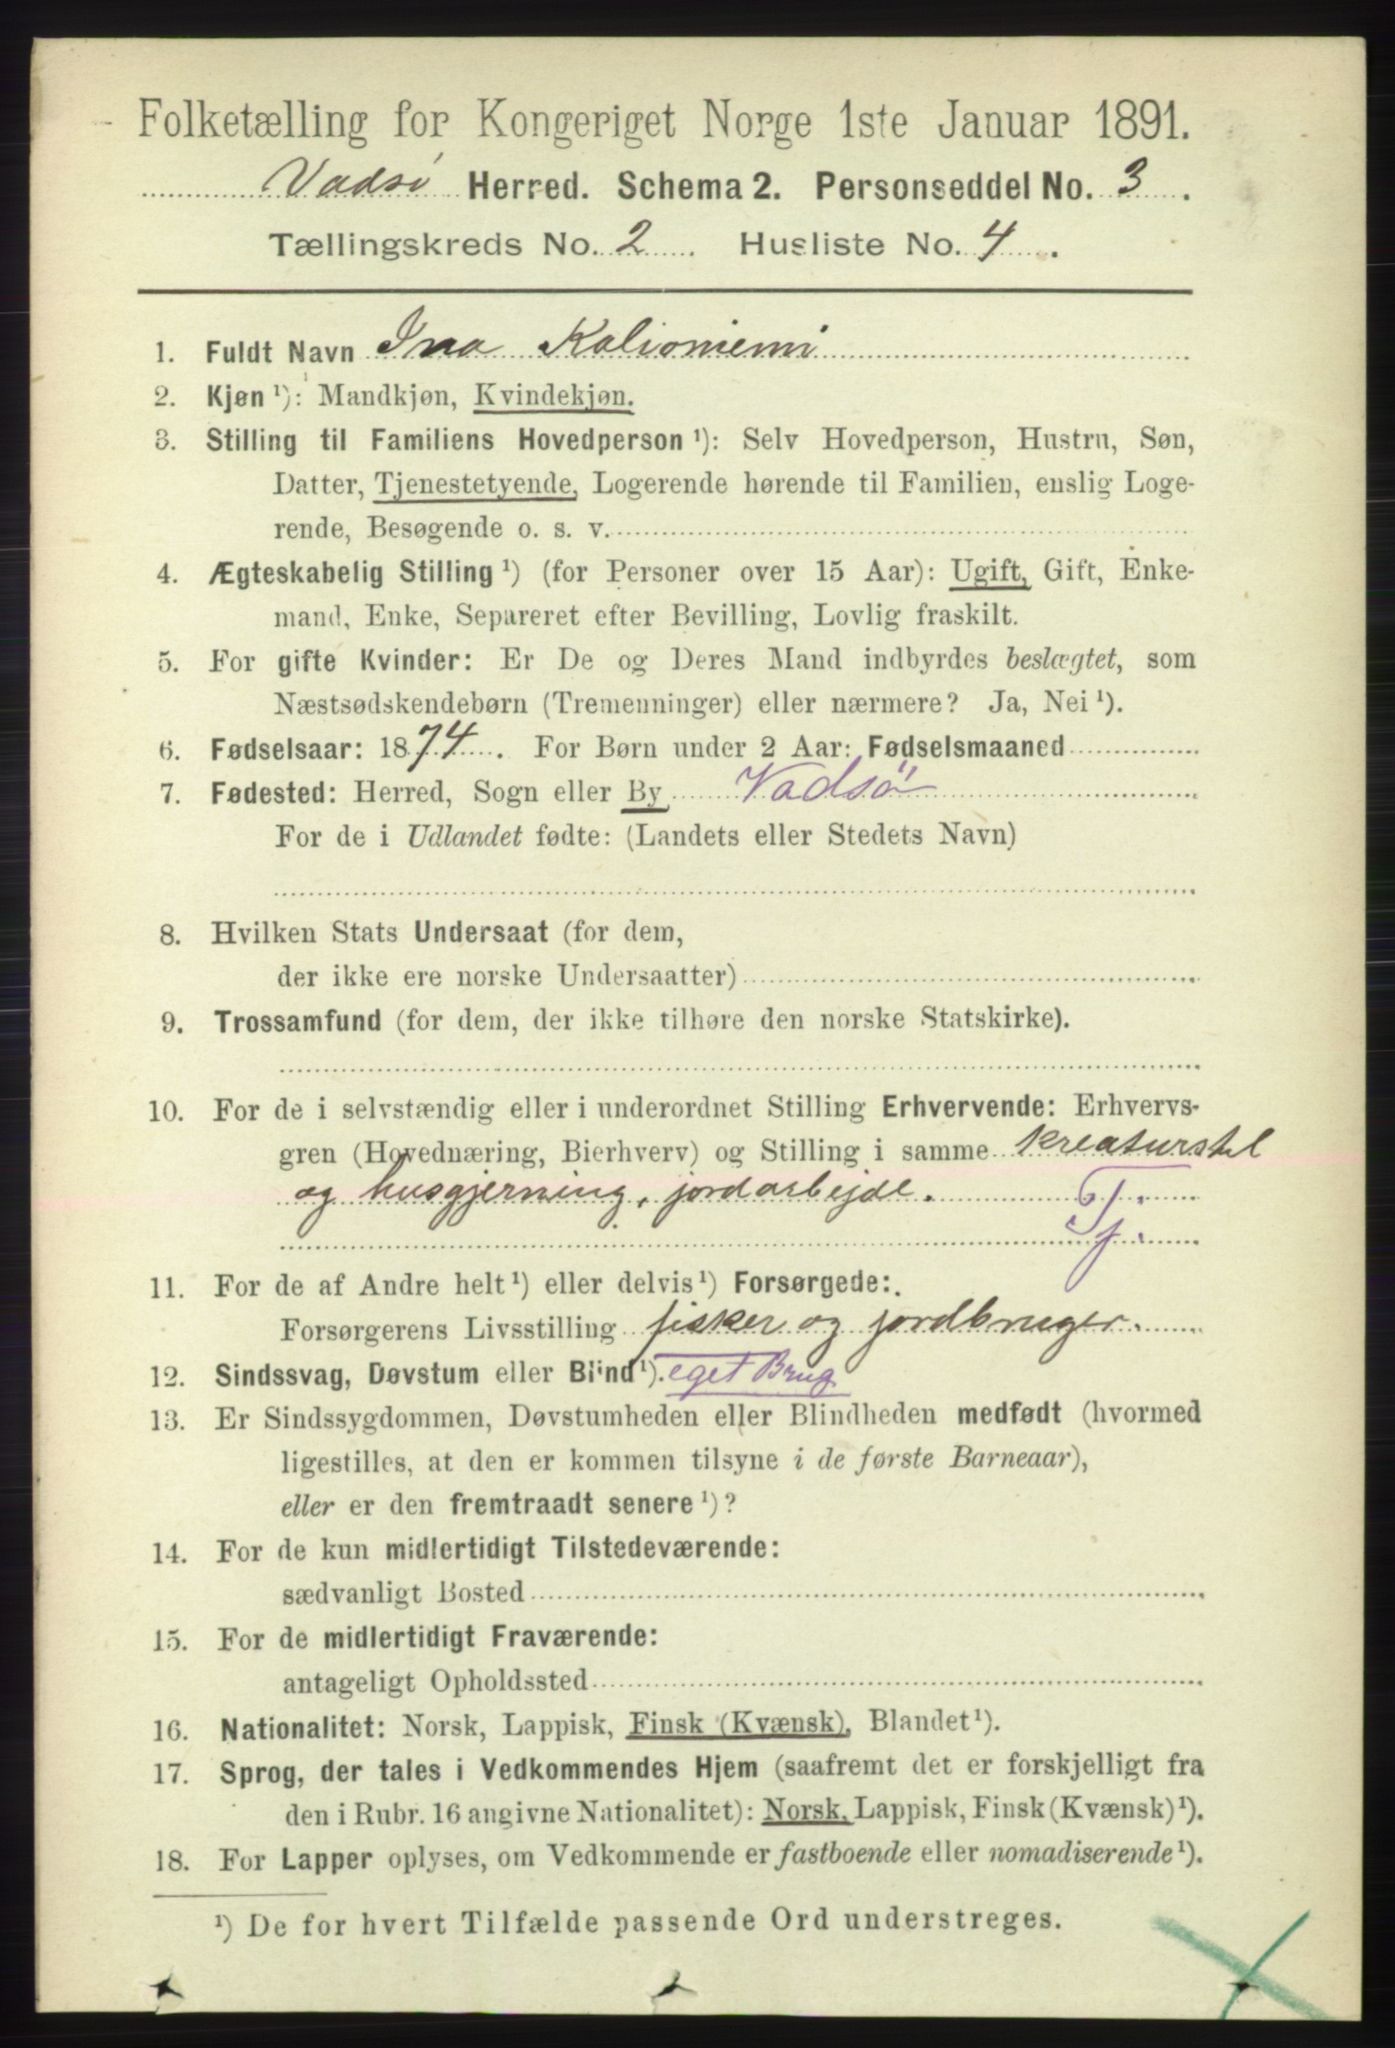 Folketælling for Kongeriget Norge 1ste Januar 1891.
Vadsø Herred. Schema 2. Personseddel No. 3.
Tællingskreds No. 2. Husliste No. 4.
1. Fuldt Navn Ina Kaliomiemi
2. Kjøn ¹): Mandkjøn, Kvindekjøn.
3. Stilling til Familiens Hovedperson ¹): Selv Hovedperson, Hustru, Søn,
Datter, Tjenestetyende, Logerende hørende til Familien, enslig Loge-
rende, Besøgende o. s. v.
4. Ægteskabelig Stilling ¹) (for Personer over 15 Aar): Ugift, Gift, Enke-
mand, Enke, Separeret efter Bevilling, Lovlig fraskilt.
5. For gifte Kvinder: Er De og Deres Mand indbyrdes beslægtet, som
Næstsødskendebørn (Tremenninger) eller nærmere? Ja, Nei ¹).
6. Fødselsaar: 1874. For Børn under 2 Aar: Fødselsmaaned
7. Fødested: Herred, Sogn eller By Vadsø
For de i Udlandet fødte: (Landets eller Stedets Navn)
8. Hvilken Stats Undersaat (for dem,
der ikke ere norske Undersaatter)
9. Trossamfund (for dem, der ikke tilhøre den norske Statskirke).
10. For de i selvstændig eller i underordnet Stilling Erhvervende: Erhvervs-
gren (Hovednæring, Bierhverv) og Stilling i samme kreaturstel
og husgjerning, jordarbejde.
Tj.
11. For de af Andre helt ¹) eller delvis ¹) Forsørgede:
Forsørgerens Livsstilling fisker og jordbruger.
12. Sindssvag, Døvstum eller Blind ¹). eget Brug
13. Er Sindssygdommen, Døvstumheden eller Blindheden medfødt (hvormed
ligestilles, at den er kommen tilsyne i de første Barneaar),
eller er den fremtraadt senere ¹)?
14. For de kun midlertidigt Tilstedeværende:
sædvanligt Bosted
15. For de midlertidigt Fraværende:
antageligt Opholdssted
16. Nationalitet: Norsk, Lappisk, Finsk (Kvænsk), Blandet ¹).
17. Sprog, der tales i Vedkommendes Hjem (saafremt det er forskjelligt fra
den i Rubr. 16 angivne Nationalitet): Norsk, Lappisk, Finsk (Kvænsk) ¹).
18. For Lapper oplyses, om Vedkommende er fastboende eller nomadiserende ¹).
¹) De for hvert Tilfælde passende Ord understreges.